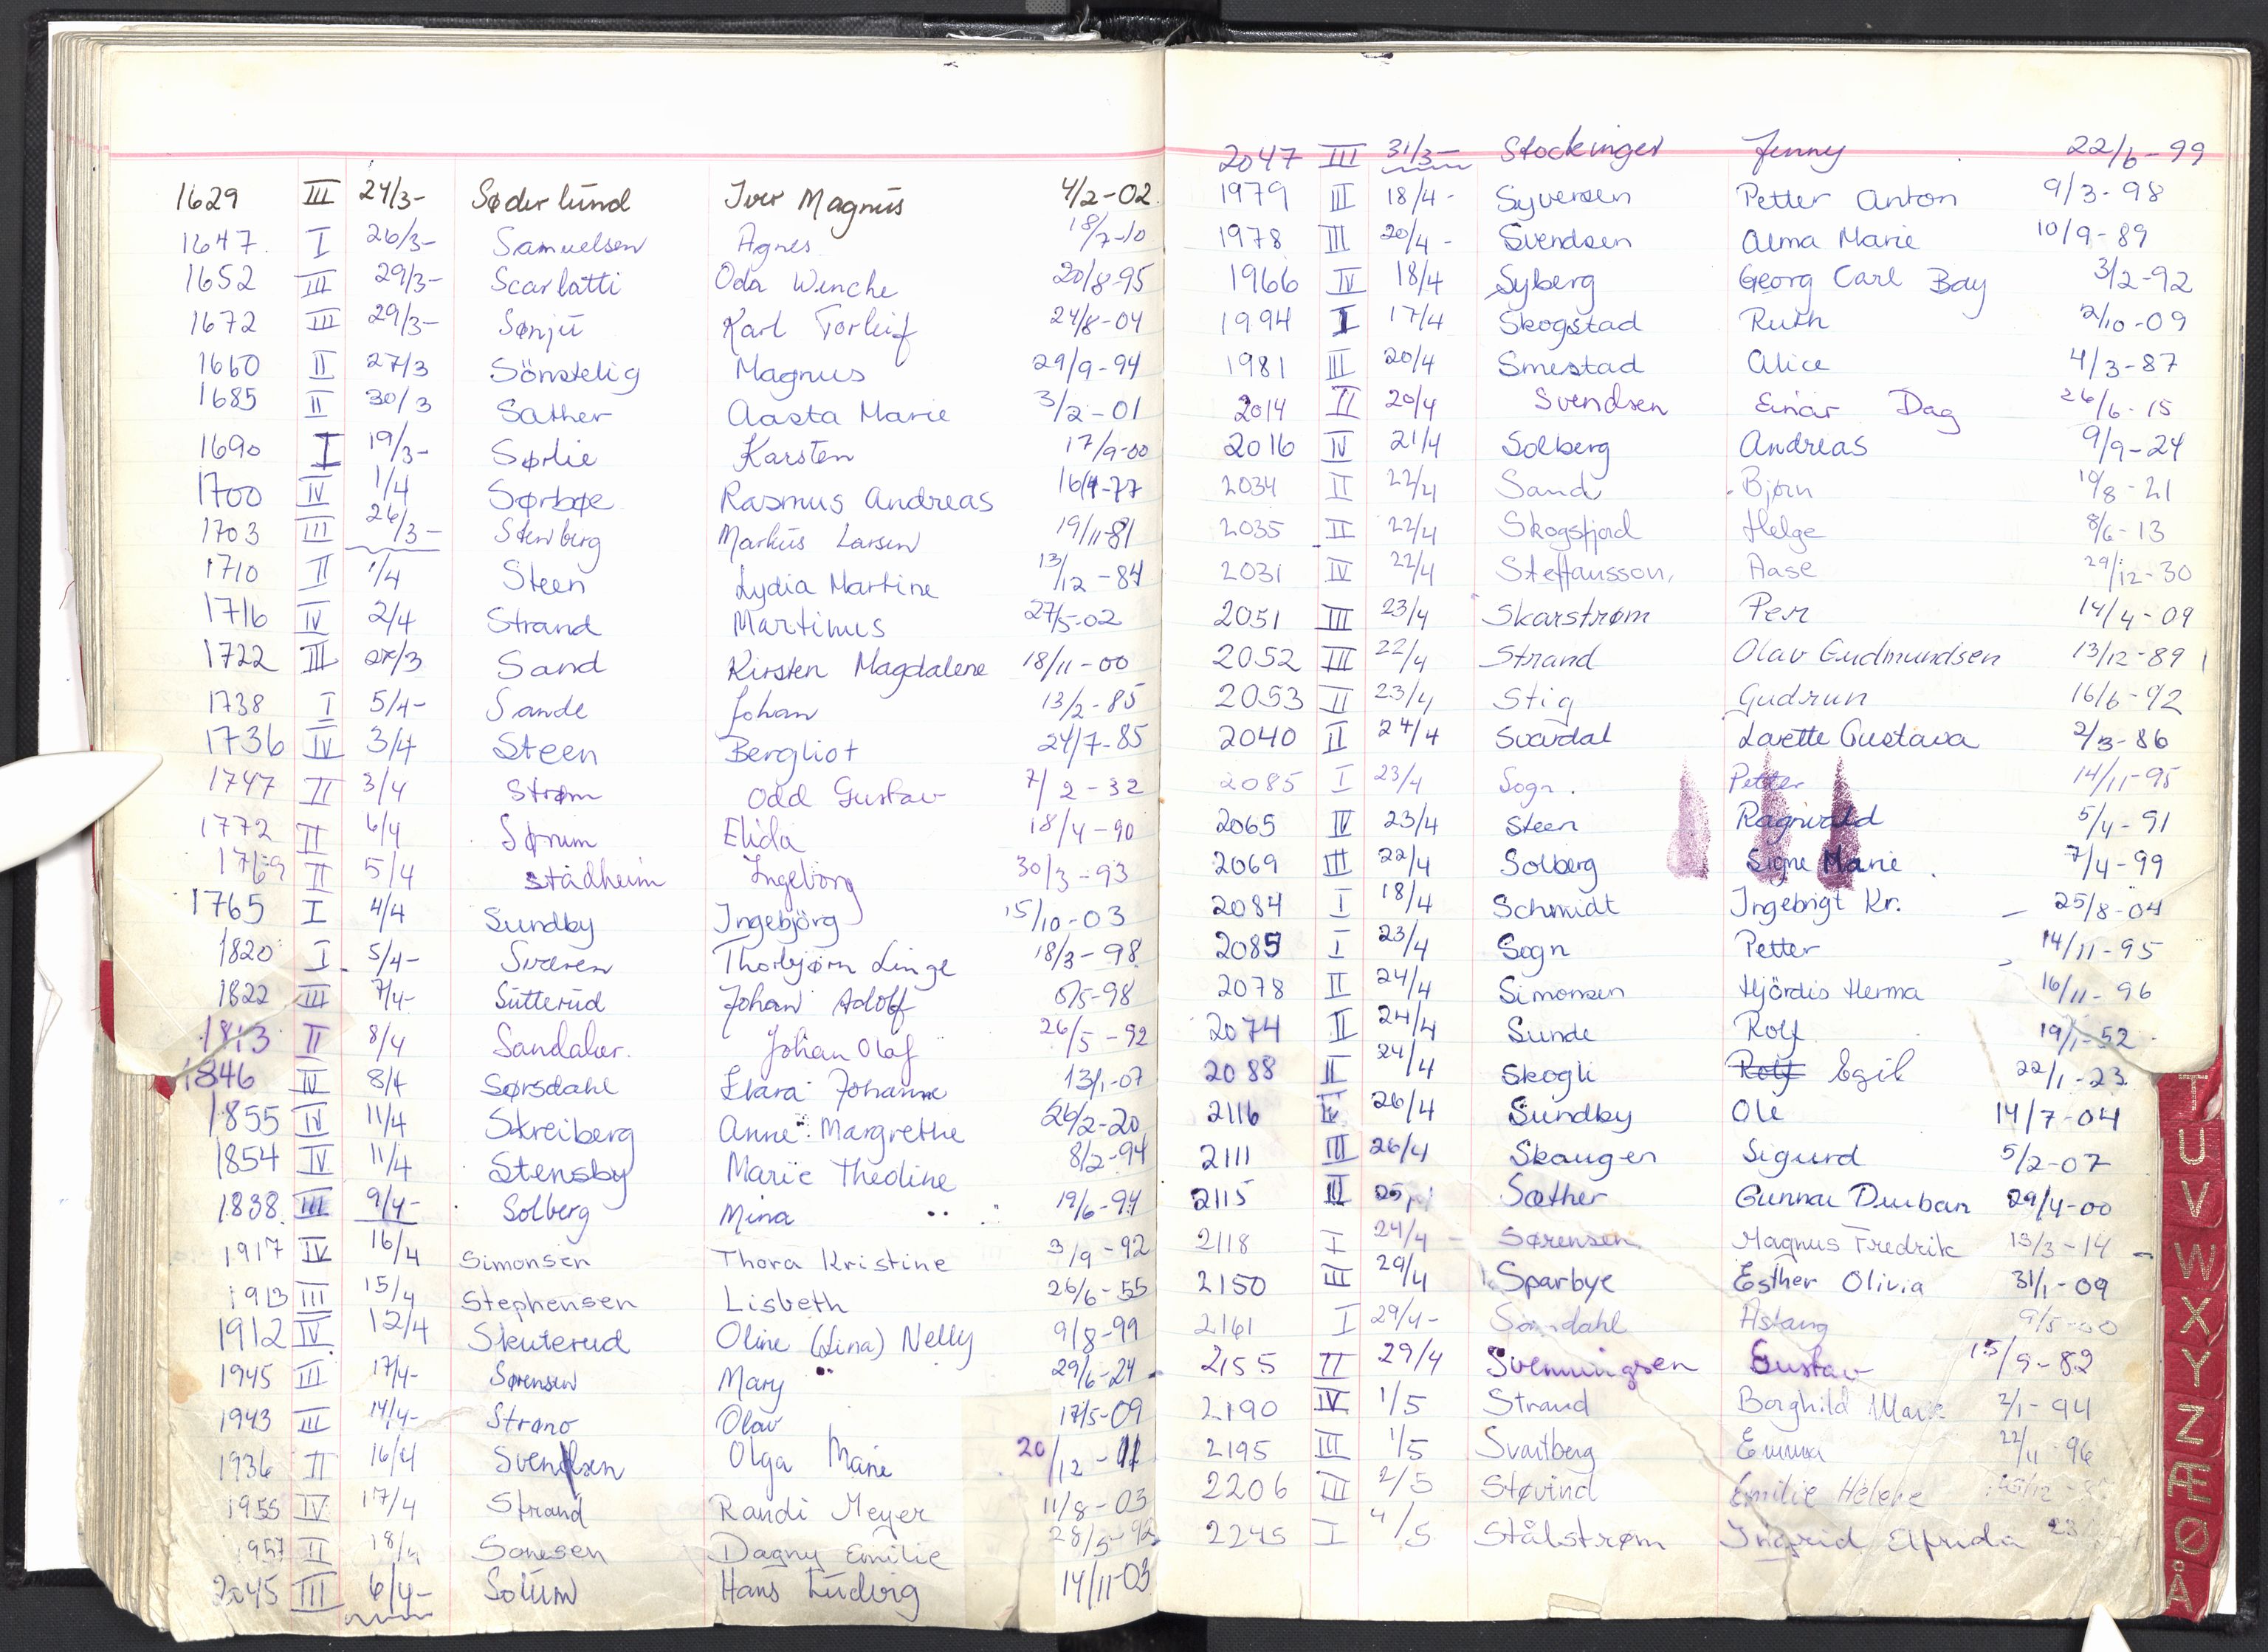 1629 III 24/3- Søderlund Iver Magnus 4/2-02
1647 I 26/3- Samuelsen Agnes 18/7-10
1652 III 29/3- Scarlatti Oda Wenche 20/8-95
1672 III 29/3- Sønju Karl Torleif 24/8-04
1660 II 27/3 Sönstelig Magnus 29/9-94
1685 II 30/3 Sather Aasta Marie 3/2-01
1690 I 19/3- Sørlie Karsten 17/9-00
1700 IV 1/4 Sørbøe Rasmus Andreas 16/4-77
1703 III 26/3- Stenberg Markus Larsen 19/11-81
1710 II 1/4 Steen Lydia Martine 13/12-84
1716 IV 2/4 Strand Martinus 27/5-02
1722 III 27/3 Sand Kirsten Magdalene 18/11-00
1738 I 5/4- Sande Johan 13/2-85
1736 IV 3/4 Steen Bergliot 24/7-85
1747 II 3/4 Strøm Odd Gustav 7/2-32
1772 II 6/4 Sørum Elida 18/4-90
1769 II 5/4 Stådheim Ingeborg 30/3-93
1765 I 4/4 Sundby Ingebjörg 15/10-03
1820 I 5/4- Sværen Thorbjørn Linge 18/3-98
1822 III 7/4- Sutterud Johan Adolf 5/5-98
1813 II 8/4 Sandaker Johan Olaf 26/5-92
1846 IV 8/4 Sørsdahl Klara Johanne 13/1-07
1855 IV 11/4 Skreiberg Anne Margrethe 26/2-20
1854 IV 11/4 Stensby Marie Theoline 8/2-94
1838 III 9/4- Solberg Mina 19/6-94
1917 IV 16/4 Simonsen Thora Kristine 3/9-92
1913 III 15/4 Stephensen Lisbeth 26/6-55
1912 IV 12/4 Skuterud Oline (Lina) Nelly 9/8-99
1945 III 17/4- Sørensen Mary 29/6-24
1943 III 14/4- Strand Olav 17/5-09
1936 II 16/4 Svendsen Olga Marie 20/12-11
1955 IV 17/4 Strand Randi Meyer 11/8-03
1957 II 18/4 Sanesen Dagny Emilie 28/5-92
2045 III 6/4- Solum Hans Ludvig 14/11-03
2047 III 31/3- Stockinger Jenny 22/6-99
1979 III 18/4- Syversen Petter Anton 9/3-98
1978 III 20/4- Svendsen Alma Marie 10/9-89
1966 IV 18/4 Syberg Georg Carl Bay 3/2-92
1994 I 17/4 Skogstad Ruth 2/10-09
1981 III 20/4 Smestad Alice 4/3-87
2014 II 20/4 Svendsen Einar Dag 26/6-15
2016 IV 21/4 Solberg Andreas 9/9-24
2034 II 22/4 Sand Bjørn 19/8-21
2035 II 22/4 Skogsfjord Helge 8/6-13
2031 IV 22/4 Steffansson, Aase 29/12-30
2051 III 23/4 Skarstrøm Per 14/4-09
2052 III 22/4 Strand Olav Gudmundsen 13/12-89
2053 II 23/4 Stig Gudrun 16/6-92
2040 II 24/4 Svardal Lovette Gustava 2/3-86
2085 I 23/4 Sogn. Petter 14/11-95
2065 IV 23/4 Steen Ragnvald 5/4-91
2069 III 22/4 Solberg Signe Marie 7/4-99
2084 I 18/4 Schmidt Ingebrigt Kr. 25/8-04
2085 I 23/4 Sogn Petter 14/11-95
2078 II 24/4 Simonsen Hjördis Herma 16/11-96
2074 II 24/4 Sunde Rolf 19/1-52
2088 II 24/4 Skogli Rolf Egil 22/1-23
2116 IV 26/4 Sundby Ole 14/7-04
2111 III 26/4 Skaugen Sigurd 5/2-07
2115 II Sæther Gunnar Durban 29/4-00
2118 I 24/4- Sørensen Magnus Fredrik 13/3-14
2150 III 29/4 Sparbye Esther Olivia 31/1-09
2161 I 29/4- Sandahl Aslaug 9/5-00
2155 II 29/4 Svenningsen Gustav 15/9-82
2190 IV 1/5 Strand Borghild Marie 2/1-94
2195 III 1/5 Svartberg Emma 22/11-96
2206 III 2/5 Støvind Emilie Helene
2245 I 4/5 Stålstrøm Ingrid Elfrida 23
T
U
V
W
X
Y
Z
Æ
Ø
Å